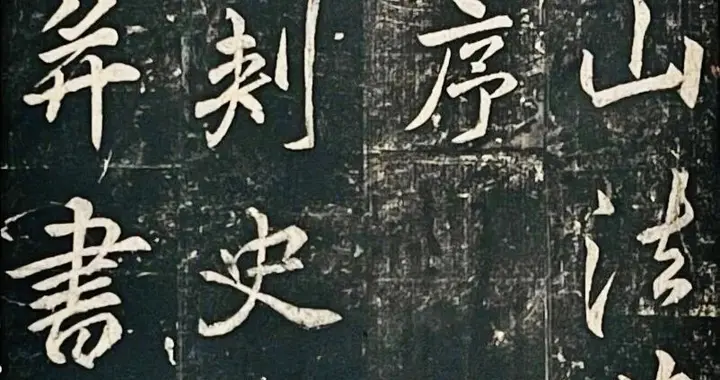 山法
序
刺史
并書